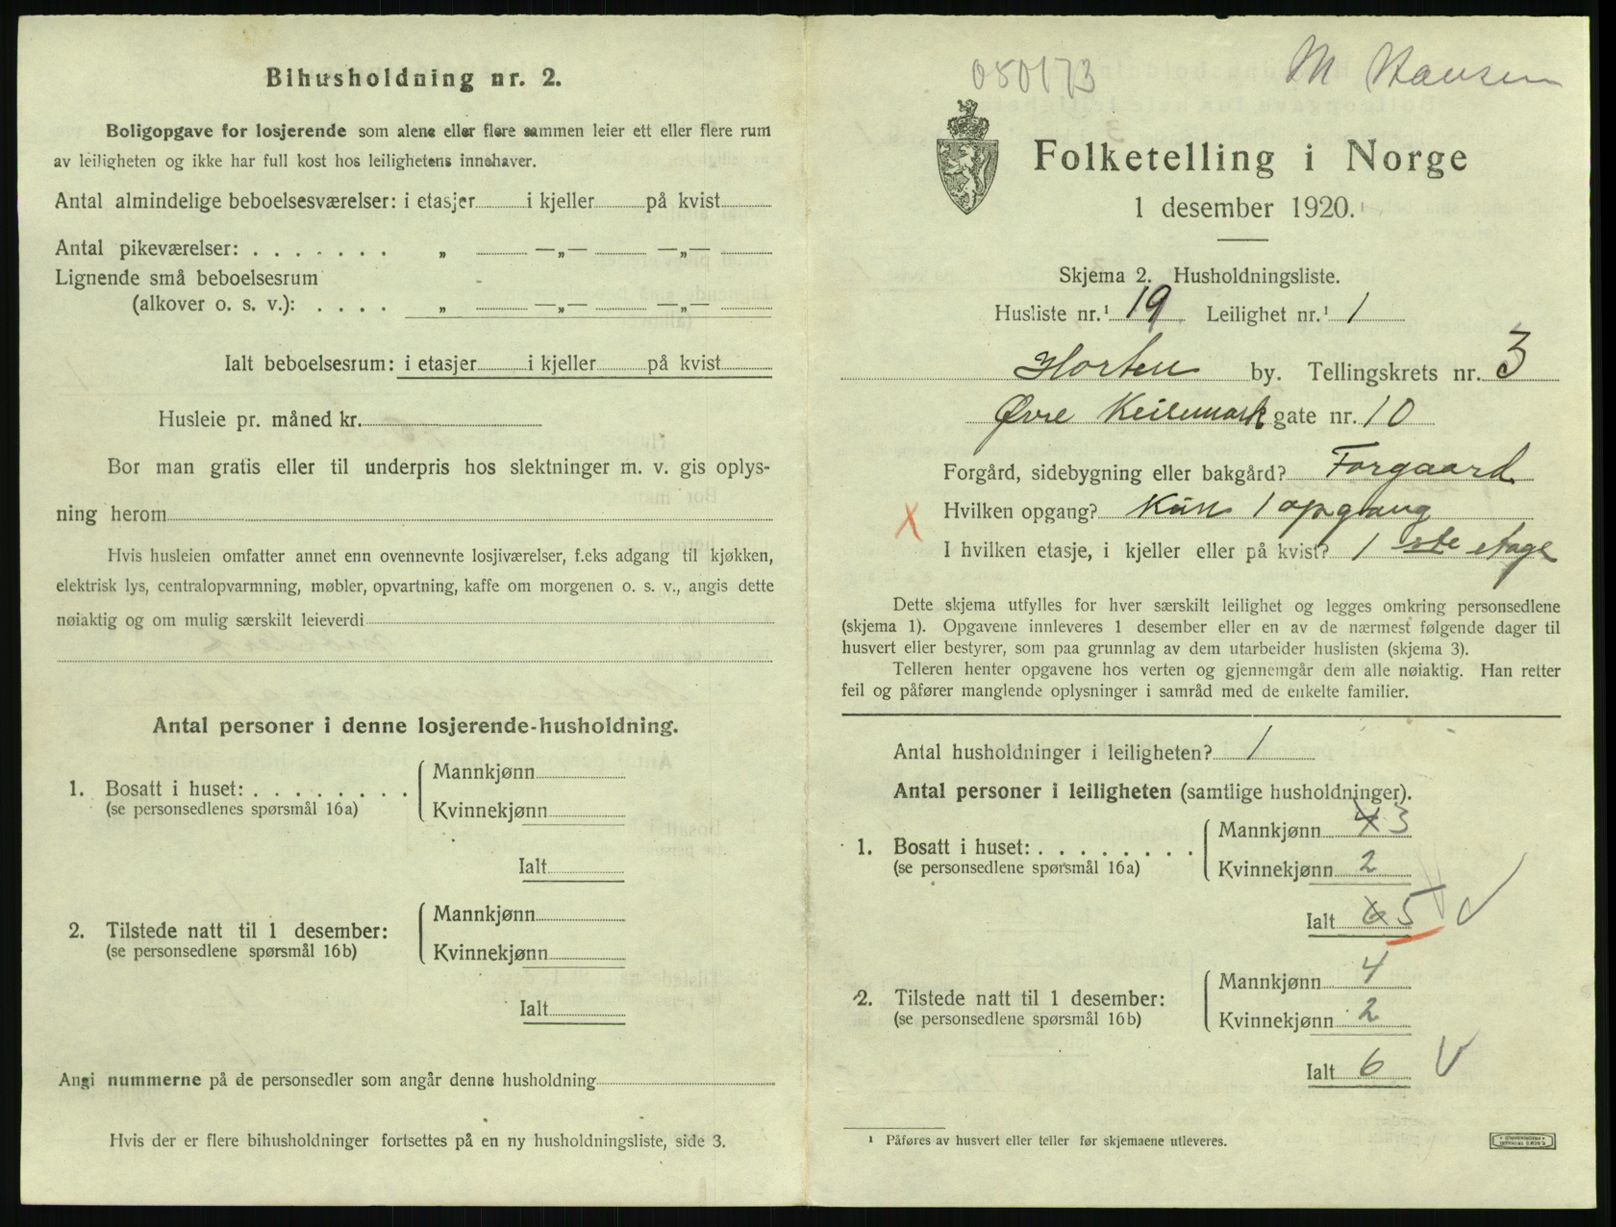 Bihusholdning nr. 2.
Boligopgave for losjerende som alene eller flere sammen leier ett eller flere rum
av leiligheten og ikke har full kost hos leilighetens innehaver.
Antal almindelige beboelsesværelser: i etasjer i kjeller på kvist
Antal pikeværelser: . . . . . . . „ —„— —„—
Lignende små beboelsesrum
(alkover o. s. v.): . . . . „ —„— —„—
Ialt beboelsesrum: i etasjer i kjeller på kvist
Husleie pr. måned kr.
Bor man gratis eller til underpris hos slektninger m. v. gis oplys-
ning herom
Hvis husleien omfatter annet enn ovennevnte losjiværelser, f.eks adgang til kjøkken,
elektrisk lys, centralopvarmning, møbler, opvartning, kaffe om morgenen o. s. v., angis dette
nøiaktig og om mulig særskilt leieverdi
Antal personer i denne losjerende-husholdning.
1. Bosatt i huset: . . . . . . . .
(se personsedlenes spørsmål 16a)
Mannkjønn
Kvinnekjønn
Ialt
2. Tilstede natt til 1 desember:
(se personsedlene spørsmål 16b)
Mannkjønn
Kvinnekjønn
Ialt
Angi nummerne på de personsedler som angår denne husholdning
Hvis der er flere bihusholdninger fortsettes på en ny husholdningsliste, side 3.
080173
M Hansen
Folketelling i Norge
1 desember 1920.
Skjema 2. Husholdningsliste.
Husliste nr.¹ 19 Leilighet nr.¹ 1
Horten by. Tellingskrets nr. 3
Øvre Keisemark gate nr. 10
Forgård, sidebygning eller bakgård? Forgaard
X Hvilken opgang? Kun 1 opgang
I hvilken etasje, i kjeller eller på kvist? 1 ste etage
Dette skjema utfylles for hver særskilt leilighet og legges omkring personsedlene
(skjema 1). Opgavene innleveres 1 desember eller en av de nærmest følgende dager til
husvert eller bestyrer, som paa grunnlag av dem utarbeider huslisten (skjema 3).
Telleren henter opgavene hos verten og gjennemgår dem alle nøiaktig. Han retter
feil og påfører manglende oplysninger i samråd med de enkelte familier.
Antal husholdninger i leiligheten? 1
Antal personer i leiligheten (samtlige husholdninger).
1. Bosatt i huset: . . . . . . . .
(se personsedlene spørsmål 16a)
Mannkjønn 4 3
Kvinnekjønn 2
Ialt 6 5
2. Tilstede natt til 1 desember:
(se personsedlene spørsmål 16b)
Mannkjønn 4
Kvinnekjønn 2
Ialt 6
¹ Påføres av husvert eller teller før skjemaene utleveres.